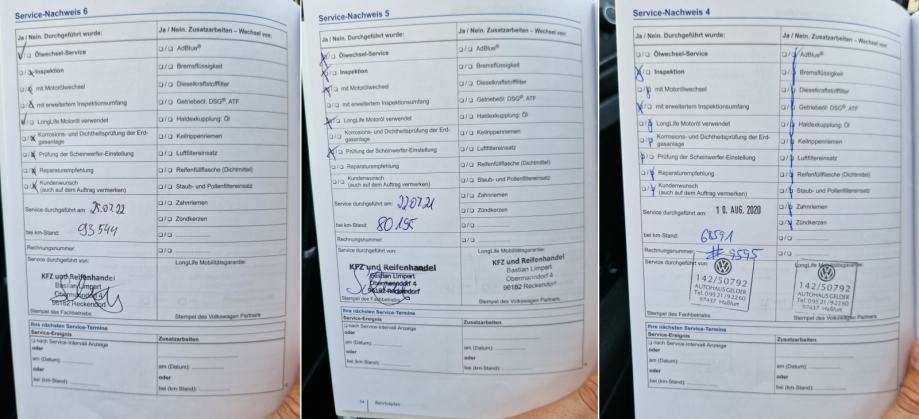 Service-Nachweis 6
Ja / Nein. Durchgeführt wurde:
Ölwechsel-Service
Inspektion
mit Motorölwechsel
mit erweitertem Inspektionsumfang
LongLife Motoröl verwendet
Korrosions- und Dichtheitsprüfung der Erd-
gasanlage
Prüfung der Scheinwerfer-Einstellung
Reparaturempfehlung
Kundenwunsch
(auch auf dem Auftrag vermerken)
Service durchgeführt am: 25.07.22
bei km-Stand: 93544
Rechnungsnummer:
Service durchgeführt von:
KFZ und Reifenhandel
Bastian Limpert
Obermanndorf 4
96182 Reckendorf
Stempel des Fachbetriebs
Ja / Nein. Zusatzarbeiten – Wechsel von:
AdBlue®
Bremsflüssigkeit
Dieselkraftstofffilter
Getriebeöl: DSG®, ATF
Haldexkupplung: Öl
Keilrippenriemen
Luftfiltereinsatz
Reifenfüllflasche (Dichtmittel)
Staub- und Pollenfiltereinsatz
Zahnriemen
Zündkerzen
LongLife Mobilitätsgarantie:
Stempel des Volkswagen Partners
Ihre nächsten Service-Termine
Service-Ereignis
nach Service-Intervall-Anzeige
oder
am (Datum):
oder
bei (km-Stand):
Zusatzarbeiten
am (Datum):
oder
bei (km-Stand):
Service-Nachweis 5
Ja / Nein. Durchgeführt wurde:
Ölwechsel-Service
Inspektion
mit Motorölwechsel
mit erweitertem Inspektionsumfang
LongLife Motoröl verwendet
Korrosions- und Dichtheitsprüfung der Erd-
gasanlage
Prüfung der Scheinwerfer-Einstellung
Reparaturempfehlung
Kundenwunsch
(auch auf dem Auftrag vermerken)
Service durchgeführt am: 22.07.21
bei km-Stand: 80.195
Rechnungsnummer:
Service durchgeführt von:
KFZ und Reifenhandel
Bastian Limpert
Obermanndorf 4
96182 Reckendorf
Stempel des Fachbetriebs
Ja / Nein. Zusatzarbeiten – Wechsel von:
AdBlue®
Bremsflüssigkeit
Dieselkraftstofffilter
Getriebeöl: DSG®, ATF
Haldexkupplung: Öl
Keilrippenriemen
Luftfiltereinsatz
Reifenfüllflasche (Dichtmittel)
Staub- und Pollenfiltereinsatz
Zahnriemen
Zündkerzen
LongLife Mobilitätsgarantie:
KFZ und Reifenhandel
Bastian Limpert
Obermanndorf 4
96182 Reckendorf
Stempel des Volkswagen Partners
Ihre nächsten Service-Termine
Service-Ereignis
nach Service-Intervall-Anzeige
oder
am (Datum):
oder
bei (km-Stand):
Zusatzarbeiten
am (Datum):
oder
bei (km-Stand):
Serviceplan
Service-Nachweis 4
Ja / Nein. Durchgeführt wurde:
Ölwechsel-Service
Inspektion
mit Motorölwechsel
mit erweitertem Inspektionsumfang
LongLife Motoröl verwendet
Korrosions- und Dichtheitsprüfung der Erd-
gasanlage
Prüfung der Scheinwerfer-Einstellung
Reparaturempfehlung
Kundenwunsch
(auch auf dem Auftrag vermerken)
Service durchgeführt am: 10. AUG. 2020
bei km-Stand: 68591
Rechnungsnummer: # 9595
Service durchgeführt von:
142/50792
AUTOHAUS GELDER
Tel. 09521/92260
97437 Haßfurt
Stempel des Fachbetriebs
Ja / Nein. Zusatzarbeiten – Wechsel von:
AdBlue®
Bremsflüssigkeit
Dieselkraftstofffilter
Getriebeöl: DSG®, ATF
Haldexkupplung: Öl
Keilrippenriemen
Luftfiltereinsatz
Reifenfüllflasche (Dichtmittel)
Staub- und Pollenfiltereinsatz
Zahnriemen
Zündkerzen
LongLife Mobilitätsgarantie:
142/50792
AUTOHAUS GELDER
Tel. 09521/92260
97437 Haßfurt
Stempel des Volkswagen Partners
Ihre nächsten Service-Termine
Service-Ereignis
nach Service-Intervall-Anzeige
oder
am (Datum):
oder
bei (km-Stand):
Zusatzarbeiten
am (Datum):
oder
bei (km-Stand):